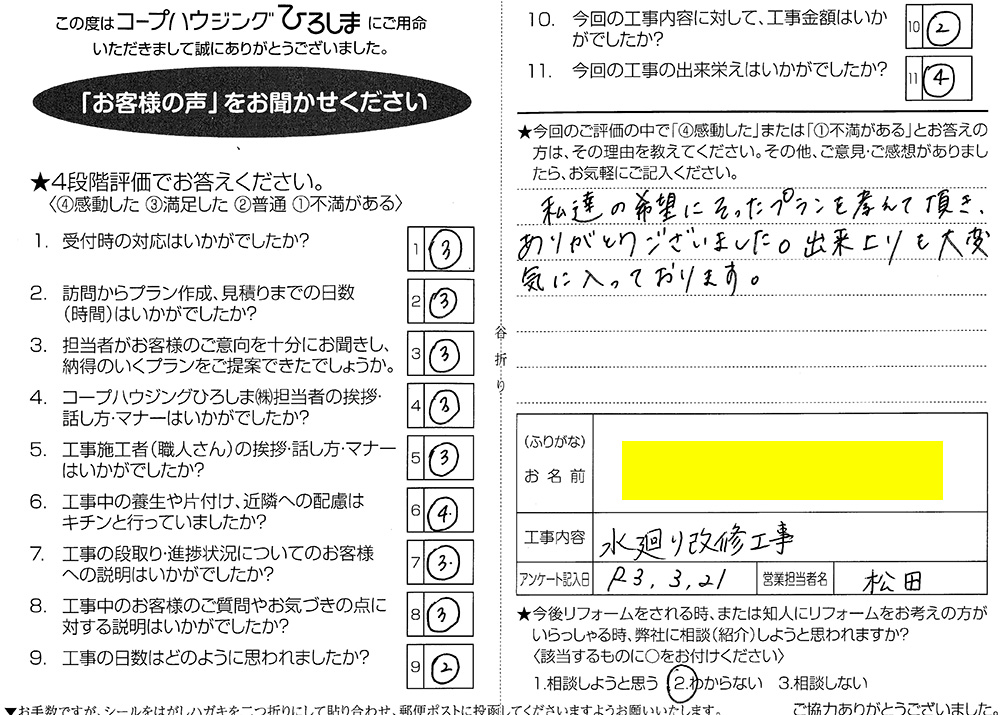 この度はコープハウジングひろしまにご用命
いただきまして誠にありがとうございました。
「お客様の声」をお聞かせください
★4段階評価でお答えください。
〈④感動した ③満足した ②普通 ①不満がある〉
1. 受付時の対応はいかがでしたか?
1 ③
2. 訪問からプラン作成、見積りまでの日数
(時間)はいかがでしたか?
2 ③
3. 担当者がお客様のご意向を十分にお聞きし、
納得のいくプランをご提案できたでしょうか。
3 ③
4. コープハウジングひろしま㈱担当者の挨拶・
話し方・マナーはいかがでしたか?
4 ③
5. 工事施工者(職人さん)の挨拶・話し方・マナー
はいかがでしたか?
5 ③
6. 工事中の養生や片付け、近隣への配慮は
キチンと行っていましたか?
6 ④
7. 工事の段取り・進捗状況についてのお客様
への説明はいかがでしたか?
7 ③
8. 工事中のお客様のご質問やお気づきの点に
対する説明はいかがでしたか?
8 ③
9. 工事の日数はどのように思われましたか?
9 ②
▼お手数ですが、シールをはがしハガキを二つ折りにして貼り合わせ、郵便ポストに投函してくださいますようお願いいたします。
谷折り
10. 今回の工事内容に対して、工事金額はいか
がでしたか?
10 ②
11. 今回の工事の出来栄えはいかがでしたか?
11 ④
★今回のご評価の中で「④感動した」または「①不満がある」とお答えの
方は、その理由を教えてください。その他、ご意見・ご感想がありまし
たら、お気軽にご記入ください。
私達の希望にそったプランを考えて頂き、
ありがとうございました。出来上りも大変
気に入っております。
(ふりがな)
お名前
工事内容 水廻り改修工事
アンケート記入日 R3,3,21 営業担当者名 松田
★今後リフォームをされる時、または知人にリフォームをお考えの方が
いらっしゃる時、弊社に相談(紹介)しようと思われますか?
〈該当するものに○をお付けください〉
1.相談しようと思う 2.わからない 3.相談しない
ご協力ありがとうございました。